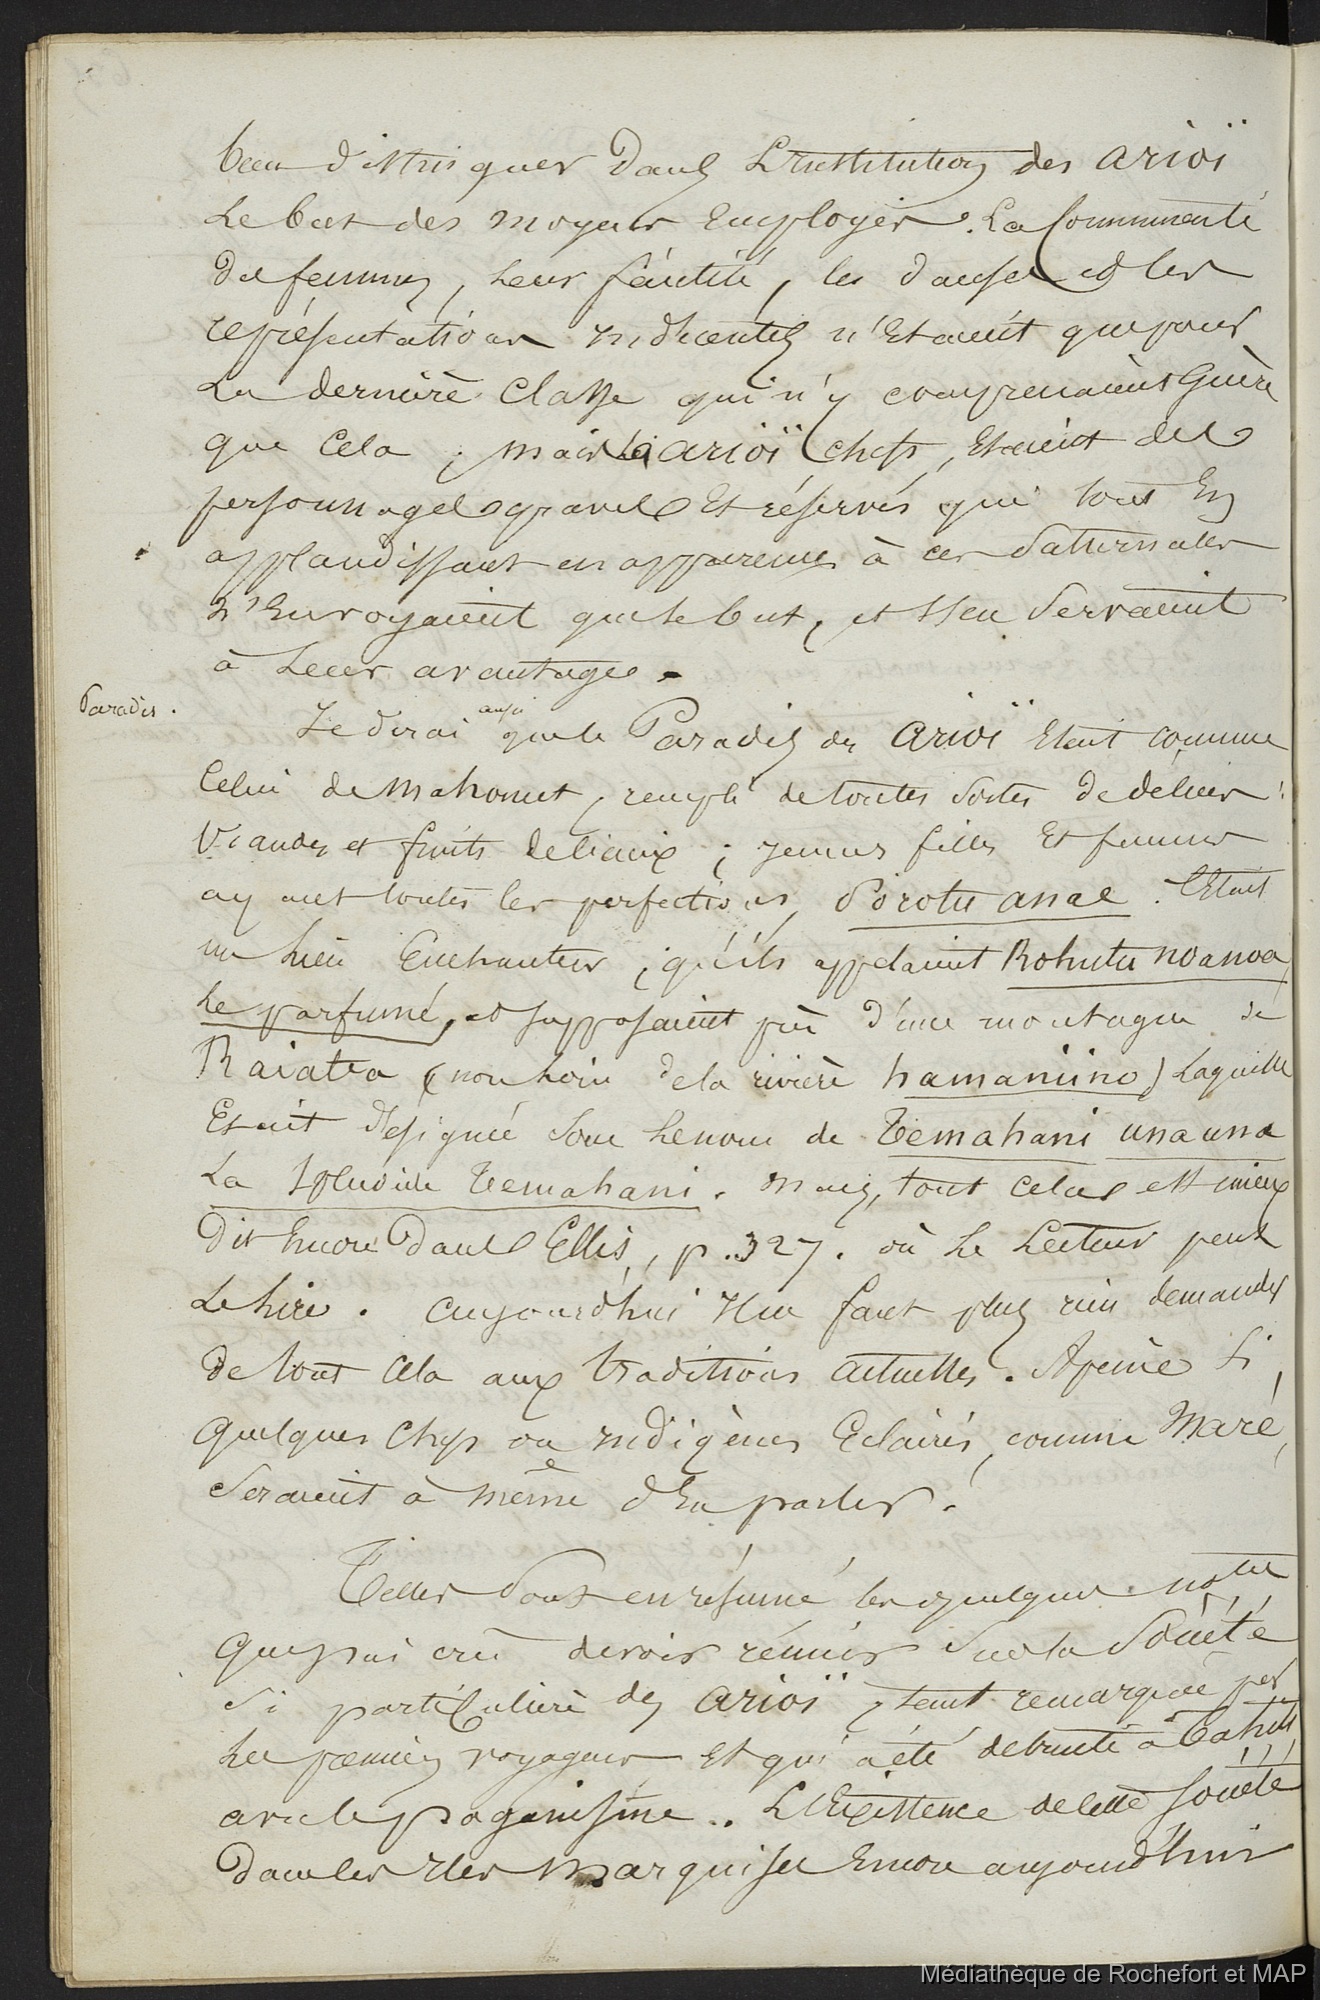 bien distinguer dans L'institution des arioï
le but des moyens employés. La Communauté
des femmes, leur féautité, les danses et les
représentations indécentes n'Etaient que pour
La dernière Classe qui n'y comprenaient Guère
que Cela ; mais les arioï chefs, Etaient des
personnages graves Et réservés qui tout En
applaudissant en apparence à ces Saturnales
N'Envoyaient que le but, et s'en Servaient
à Leur avantage.
Paradis.
Je dirai aussi que le Paradis des arioï Etait comme
Celui de Mahomet, rempli de toutes Sortes de délices :
Viandes et fruits délicieux ; jeunes filles Et femmes
ayant toutes les perfections, Poirotu anae. C'Etait
un Lieu Enchanteur, qu'ils appelaient Rohutu noanoa,
Le parfumé, et supposaient près d'une montagne de
Raiatea (non Loin de la rivière hamaniino) Laquelle
Etait désignée Sous Le nom de Temahani unauna
La Splendide Temahani. Mais, tout cela est mieux
Dit Encore Dans Ellis, p. 327. où Le Lecteur peut
Le Lire. Aujourd'hui Il ne faut plus rien demander
De tout Cela aux traditions actuelles. A peine Si
quelques Chefs ou indigènes Eclairés, comme Maré,
Seraient à même d'En parler.
Telles Sont en résumé les quelques notes
que j'ai crû devoir réunir Sur la Société
Si particulière des arioï, tant remarquée par
Les premiers voyageurs Et qui a été détruite à Tahiti
avec le paganisme.. L'Existence de cette Société
Dans les Iles Marquises Encore aujourd'hui